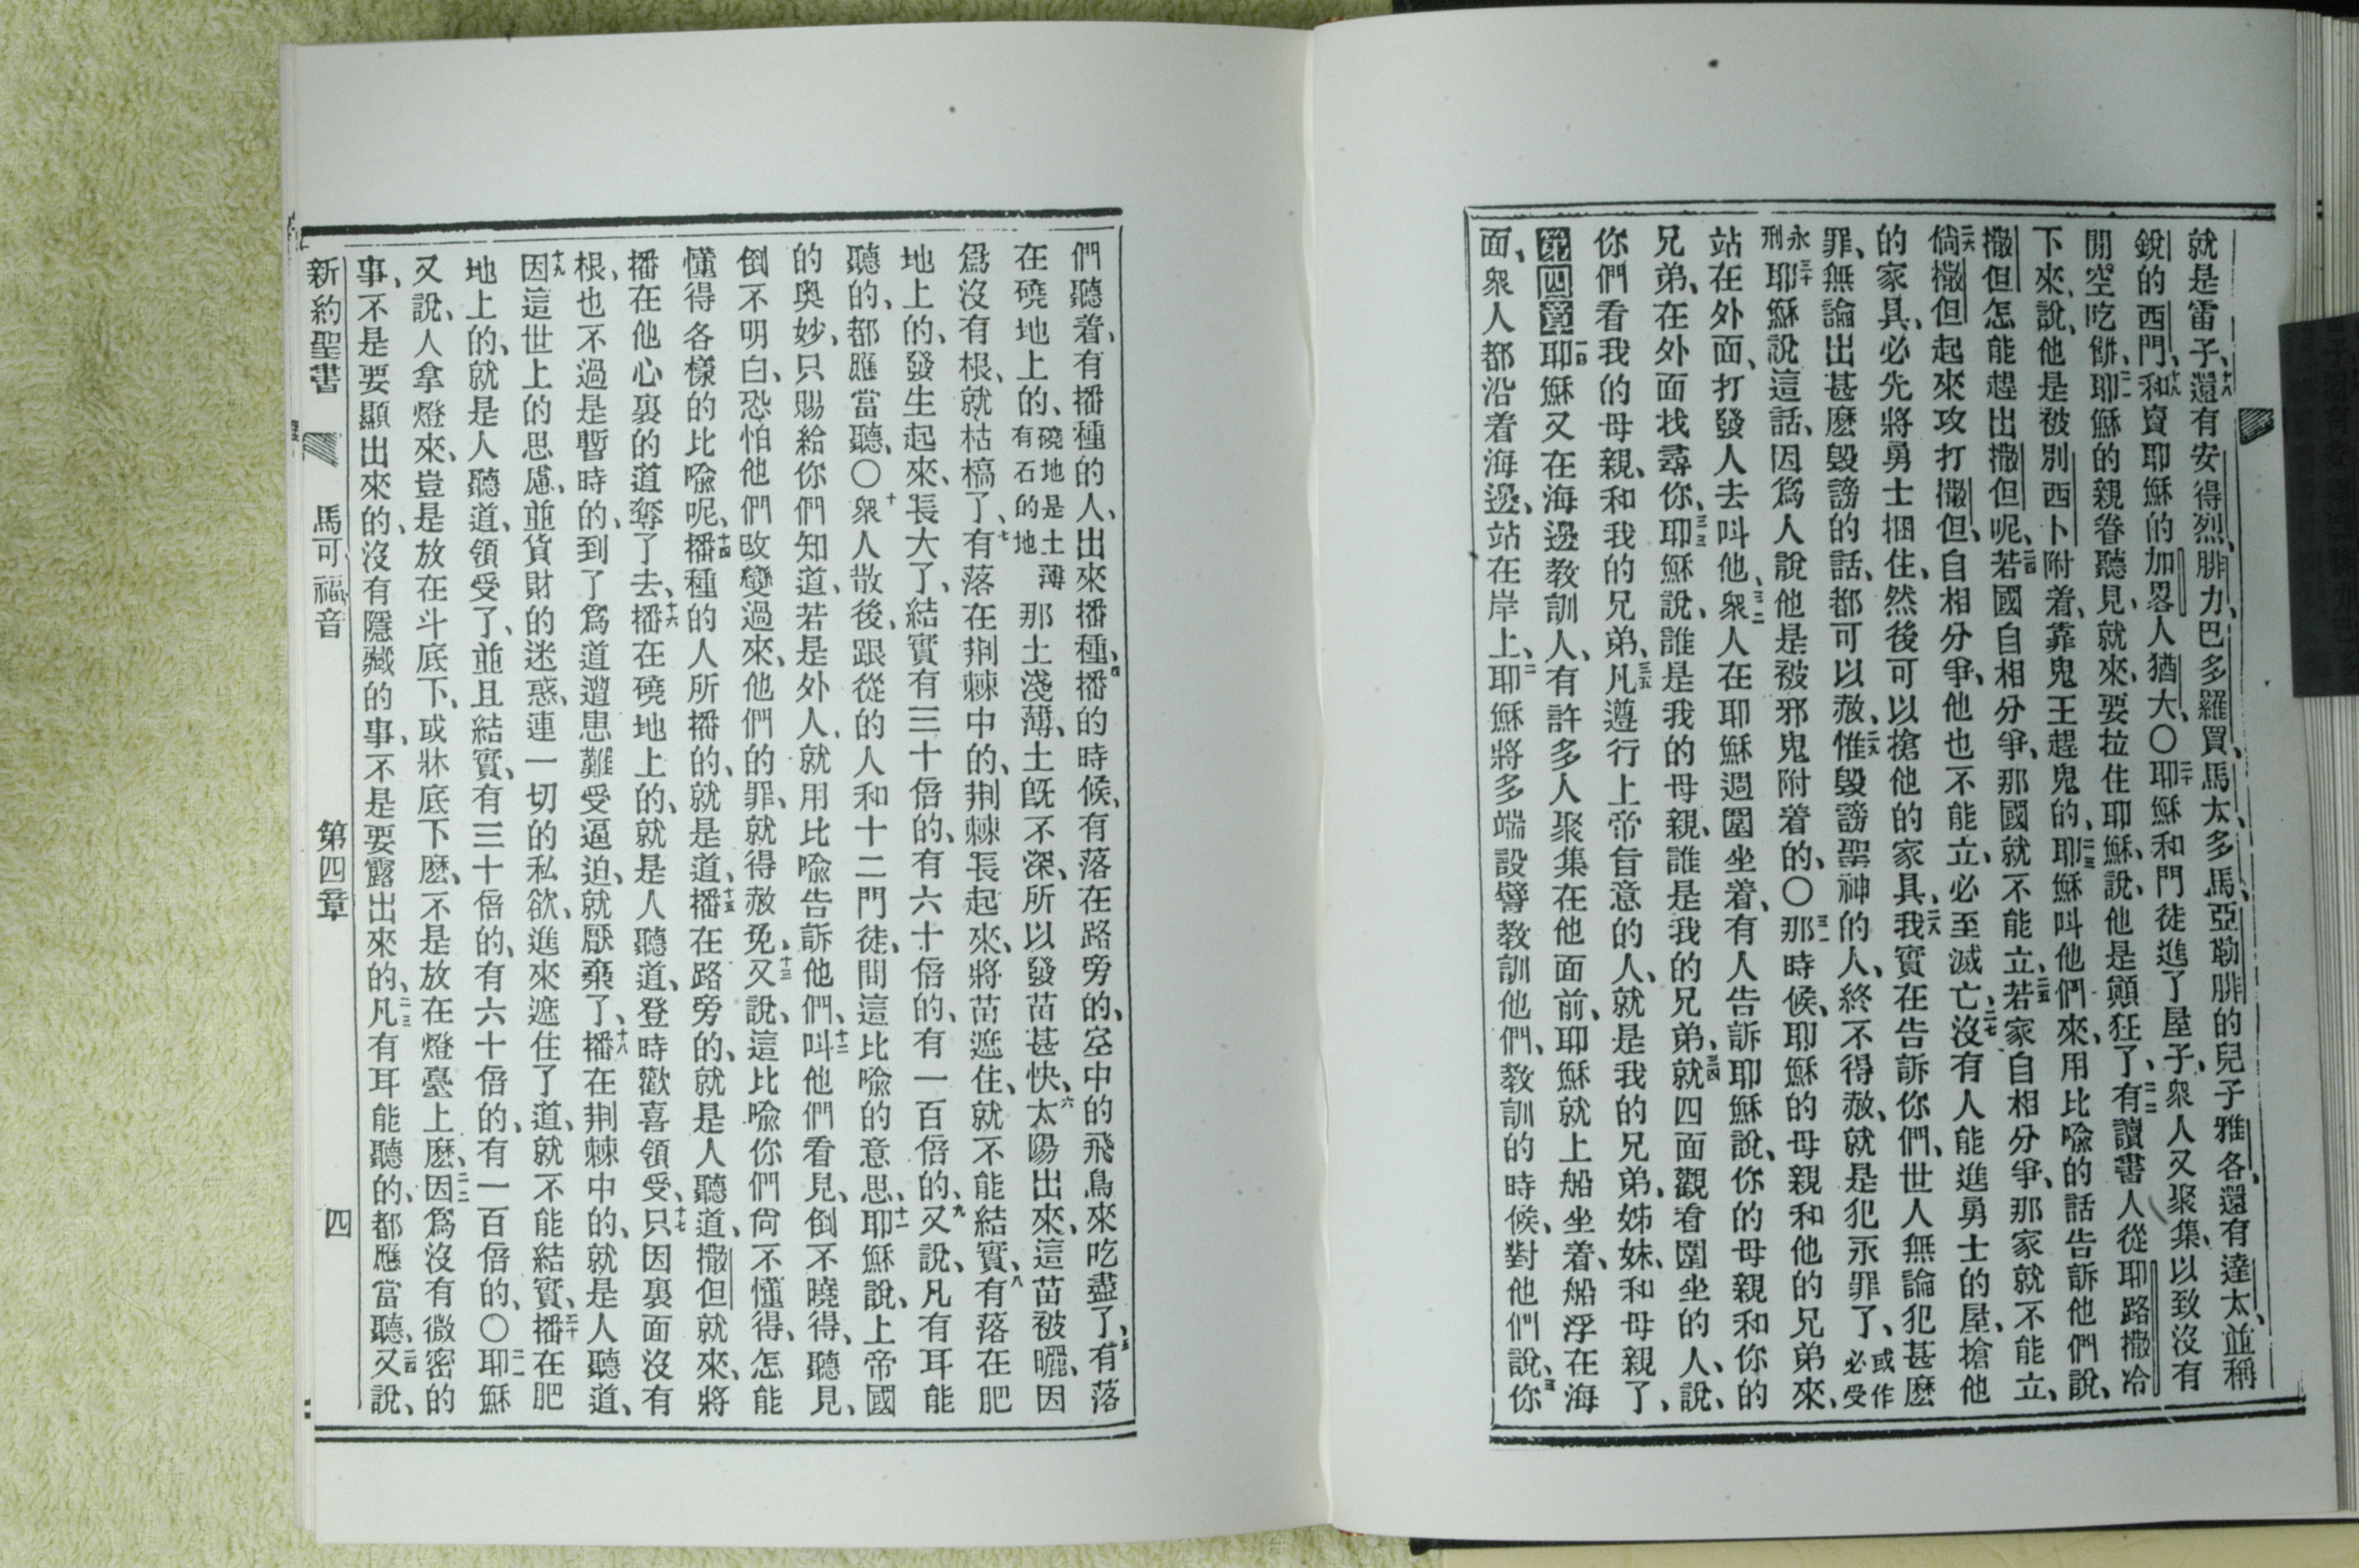 就是雷子、十八還有安得烈、腓力、巴多羅買、馬太、多馬、亞勒腓的兒子雅各、還有達太、並稱
銳的西門、十九和賣耶穌的加畧人猶大、〇二十耶穌和門徒進了屋子、衆人又聚集、以致沒有
閒空吃餅、二一耶穌的親眷聽見、就來、要拉住耶穌、說、他是顚狂了、二二有讀書人從耶路撒冷
下來、說、他是被別西卜附着、靠鬼王趕鬼的、二三耶穌叫他們來、用比喩的話告訴他們說、
撒但怎能趕出撒但呢、二四若國自相分爭、那國就不能立、二五若家自相分爭、那家就不能立、
二六倘撒但起來攻打撒但、自相分爭、他也不能立、必至滅亡、二七沒有人能進勇士的屋、搶他
的家具、必先將勇士捆住、然後可以搶他的家具、二八我實在告訴你們、世人無論犯甚麽
罪、無論出甚麽毀謗的話、都可以赦、二九惟毀謗聖神的人、終不得赦、就是犯永罪了、或作必受
永刑三十耶穌說這話、因爲人說他是被邪鬼附着的、〇三一那時候、耶穌的母親和他的兄弟來、
站在外面、打發人去叫他、三二衆人在耶穌週圍坐着、有人告訴耶穌說、你的母親和你的
兄弟、在外面找尋你、三三耶穌說、誰是我的母親、誰是我的兄弟、三四就四面觀看圍坐的人、說、
你們看我的母親、和我的兄弟、三五凡遵行上帝旨意的人、就是我的兄弟、姊妹、和母親了、
第四章一耶穌又在海邊教訓人、有許多人聚集在他面前、耶穌就上船坐着、船浮在海
面、衆人都沿着海邊、站在岸上、二耶穌將多端設譬教訓他們、教訓的時候、對他們說、三你
們聽着、有播種的人、出來播種、四播的時候、有落在路旁的、空中的飛鳥來吃盡了、五有落
在磽地上的、磽地是土薄有石的地那土淺薄、土旣不深、所以發苗甚快、六太陽出來、這苗被曬、因
爲沒有根、就枯槁了、七有落在荆棘中的、荆棘長起來、將苗遮住、就不能結實、八有落在肥
地上的、發生起來、長大了、結實有三十倍的、有六十倍的、有一百倍的、九又說、凡有耳能
聽的、都應當聽、〇十衆人散後、跟從的人和十二門徒、問這比喩的意思、十一耶穌說、上帝國
的奧妙、只賜給你們知道、若是外人、就用比喩告訴他們、十二叫他們看見、倒不曉得、聽見、
倒不明白、恐怕他們改變過來、他們的罪、就得赦免、十三又說、這比喩你們尙不懂得、怎能
懂得各樣的比喩呢、十四播種的人所播的、就是道、十五播在路旁的、就是人聽道、撒但就來、將
播在他心裏的道奪了去、十六播在磽地上的、就是人聽道、登時歡喜領受、十七只因裏面沒有
根、也不過是暫時的、到了爲道遭患難受逼迫、就厭棄了、十八播在荆棘中的、就是人聽道、
十九因這世上的思慮、並貨財的迷惑、連一切的私欲、進來遮住了道、就不能結實、二十播在肥
地上的、就是人聽道、領受了、並且結實、有三十倍的、有六十倍的、有一百倍的、〇二一耶穌
又說、人拿燈來、豈是放在斗底下、或牀底下麽、不是放在燈臺上麽、二二因爲沒有微密的
事、不是要顯出來的、沒有隱藏的事、不是要露出來的、二三凡有耳能聽的、都應當聽、二四又說、
新約聖書 馬可福音 第四章 四